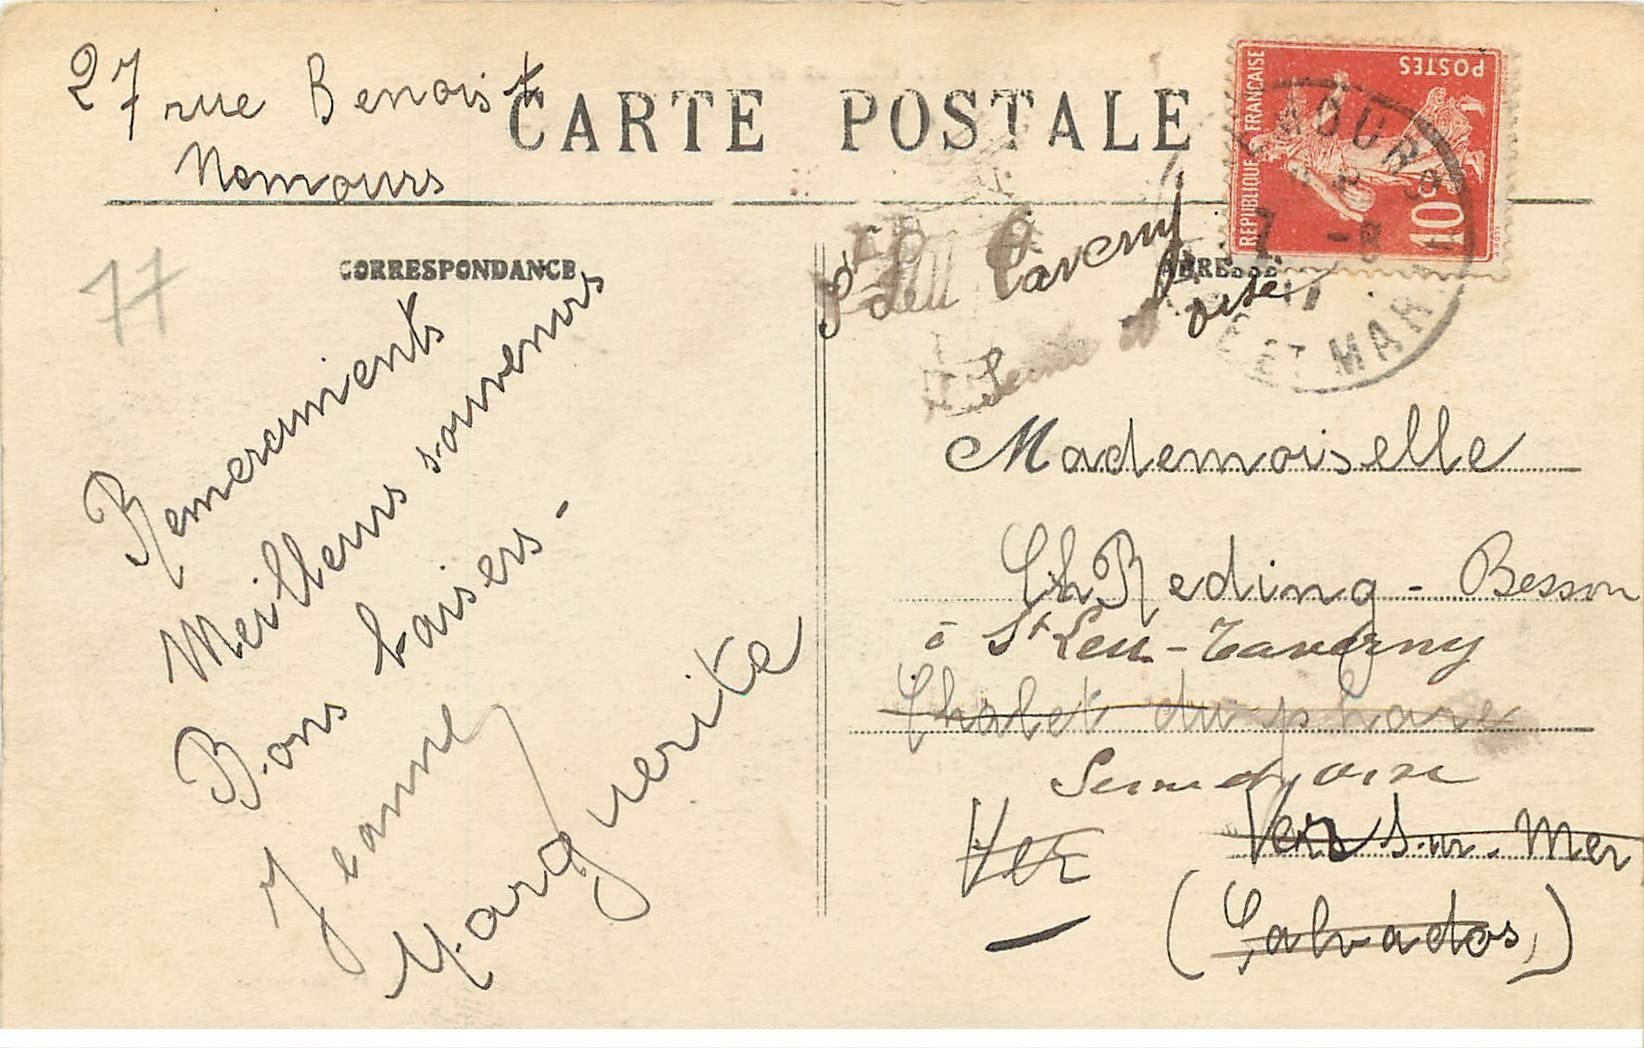 27 rue Benoist
Nemours
CARTE POSTALE
POSTES
REPUBLIQUE FRANÇAISE
10
ET MAR
77
CORRESPONDANCE
ADRESSE
St Leu Taverny
Seine et Oise
Remerciments
Meilleurs souvenirs
Bons baisers -
Jeanne
Marguerite
Mademoiselle
Ch Reding - Besson
à St Leu - Taverny
Chalet du phare
Seine et Oise
Ver
Ver s.ur. Mer
(Calvados)